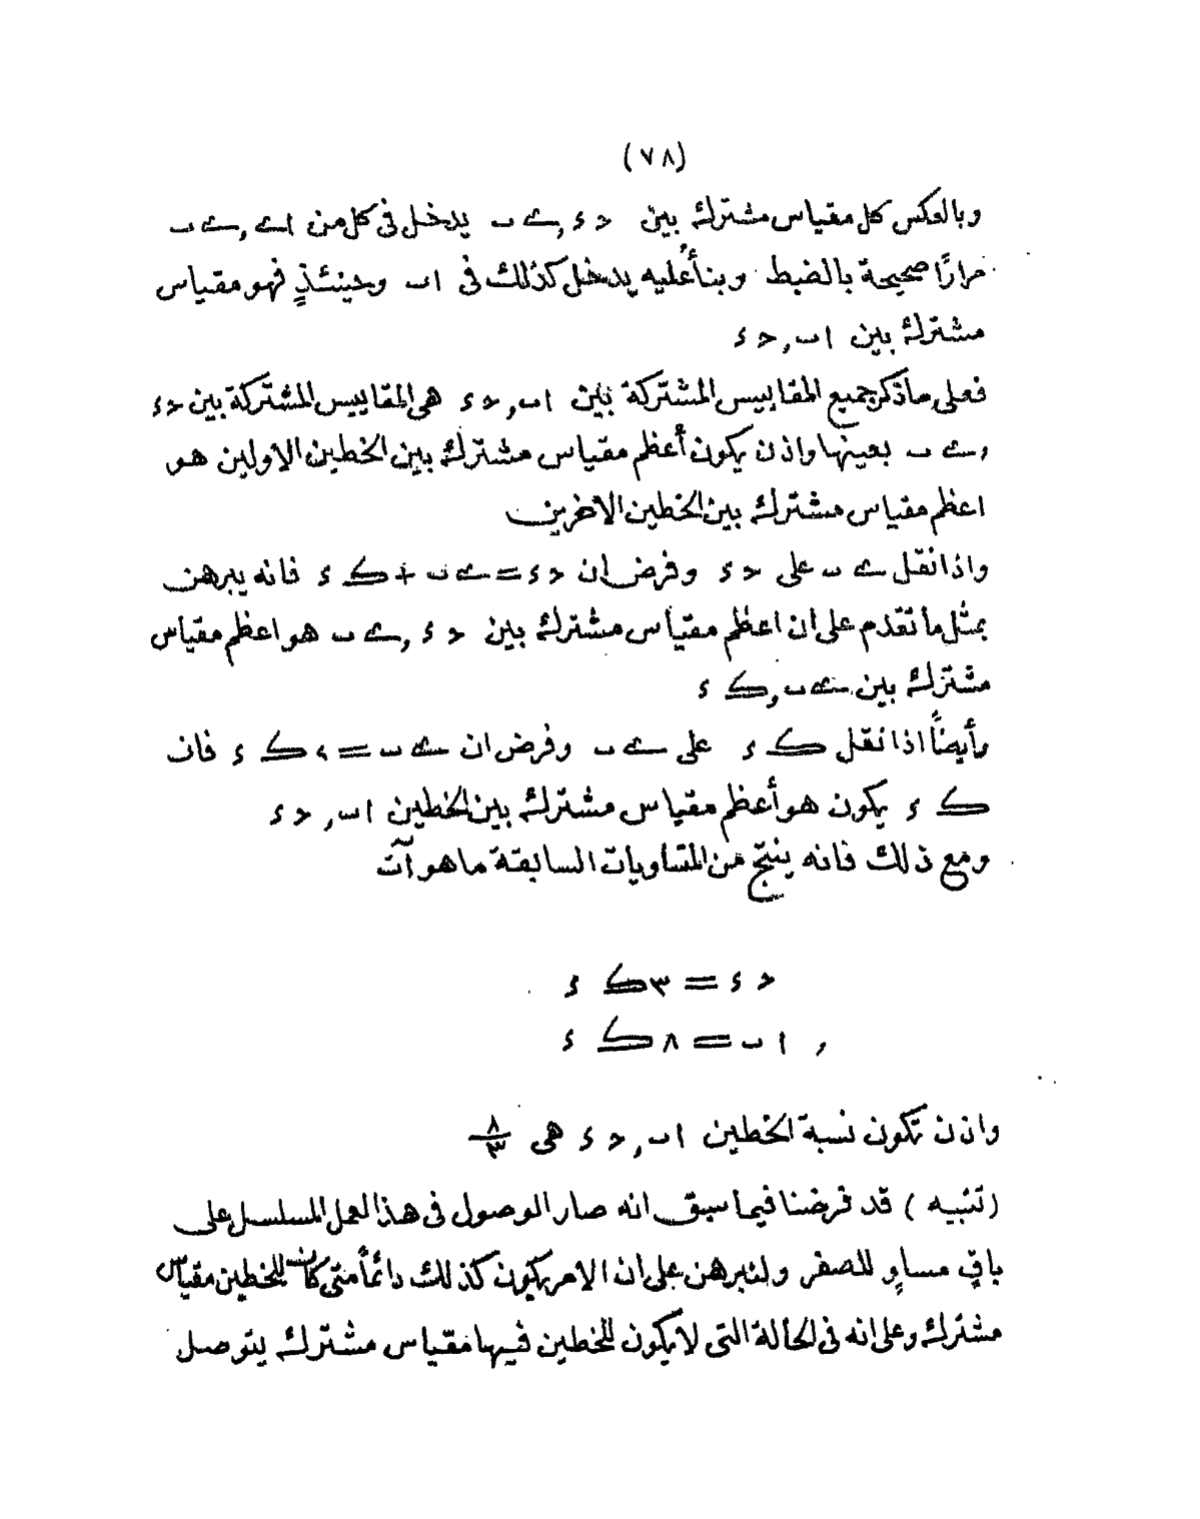 (٧٨)
وبالعكس كل مقياس مشترك بين حء , ےب يدخل فى كل من اے , ےب
مرارًا صحيحة بالضبط وبنأعليه يدخل كذلك فى اب وحينئذٍ فهو مقياس
مشترك بين اب , حء
فعلى ماذكر جميع المقاييس المشتركة بين اب , حء هى المقاييس المشتركة بين حء
, ےب بعينها واذن يكون أعظم مقياس مشترك بين الخطين الاولين هو
اعظم مقياس مشترك بين الخطين الاخرين
واذا نقل ےب على حء وفرض ان حء = ےب + كء فانه يبرهن
بمثل ما تقدم على ان اعظم مقياس مشترك بين حء , ےب هو اعظم مقياس
مشترك بين ےب , كء
وأيضاً اذا نقل كء على ےب وفرض ان ےب = ٢كء فان
كء يكون هو أعظم مقياس مشترك بين الخطين اب , حء
ومع ذلك فانه ينتج من المتساويات السابقة ما هو آت
حء = ٣كء
, اب = ٨كء
واذن تكون نسبة الخطين اب , حء هى ٨/٣
(تنبيه) قد فرضنا فيما سبق انه صار الوصول فى هذا العمل المسلسل على
باقٍ مساوٍ للصفر ولنبرهن على ان الامر يكون كذلك دائماً متى كان للخطين مقياس
مشترك وعلى انه فى الحالة التى لا يكون للخطين فيها مقياس مشترك يتوصل